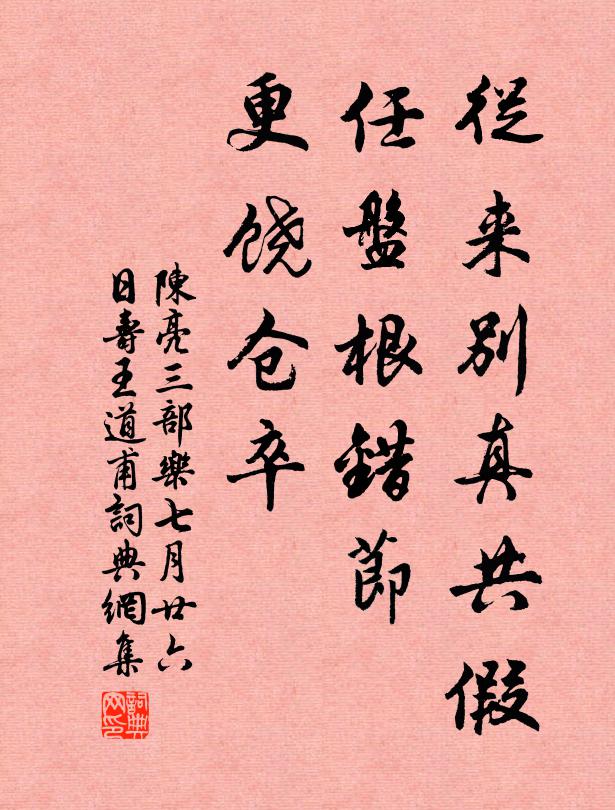 從来別真共假
任盤根錯節
更饶仓卒
陳亮三部樂七月廿六
日壽王道甫詞典網集
詞典网印